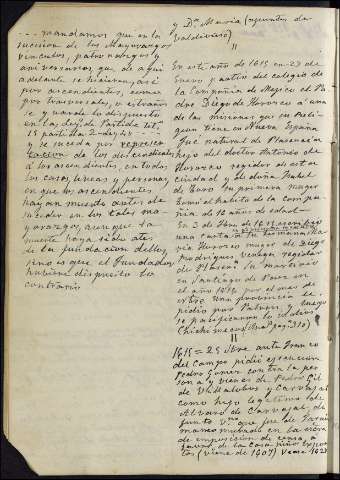 .... mandamos que en la
sucesion de los Mayorazgos
vinculos, patronazgos y
aniversarios, que de aqui
adelante se hicieran, así
por ascendientes, como
por trasversales, o estraños
se guarde lo dispuesto
en la ley de Partida tit.
15 partida 2ª ley 2ª
y se suceda por represen
tacion de los descendientes
á los ascendientes, en todos
los casos, lineas y personas
en que los ascendientes
hayan muerto antes de
suceder en los tales ma
yorazgos, aunque la
muerte haya sido antes
de la fundacion dellos,
sino es que el fundador
hubiere dispuesto lo
contrario
y Dª Maria
Valdivieso)
"
En este año de 1615 en 29 de
Enero partio del colegio de
la Compañia de Mejico el Pa
dre Diego de Horozco á una
de las misiones que su Reli
gion tiene en Nueva España
Fue natural de Plasencia
hijo del doctor Antonio de
Horozco regidor de esta
ciudad y de doña Isabel
de Toro su primera muger
Tomó el habito de la compa
ñia de 18 años de edad.
En 3 de de 1615 escribio
una carta á su hermana Ma
ria Horozco muger de Diego
Rodriguez vecino y regidor
de Plasencia
en Santiago de
el año 1616 por el mes de
una provincia
y luego
se pacificaron los Indios
Chichimecos (pag. 310)
"
1615 = 25 ante Franco
del Campo pidió ejecucion
Pedro Gomez contra la per
sona y vienes de Pedro Gil
de Villalobos y Carvajal
como hijo legitimo de
Alvaro de Carvajal, di
funto vº que fue de
mancomunado en la escra
de imposicion de censo, á
favor de
tos (viene de 1607) Vease 1621